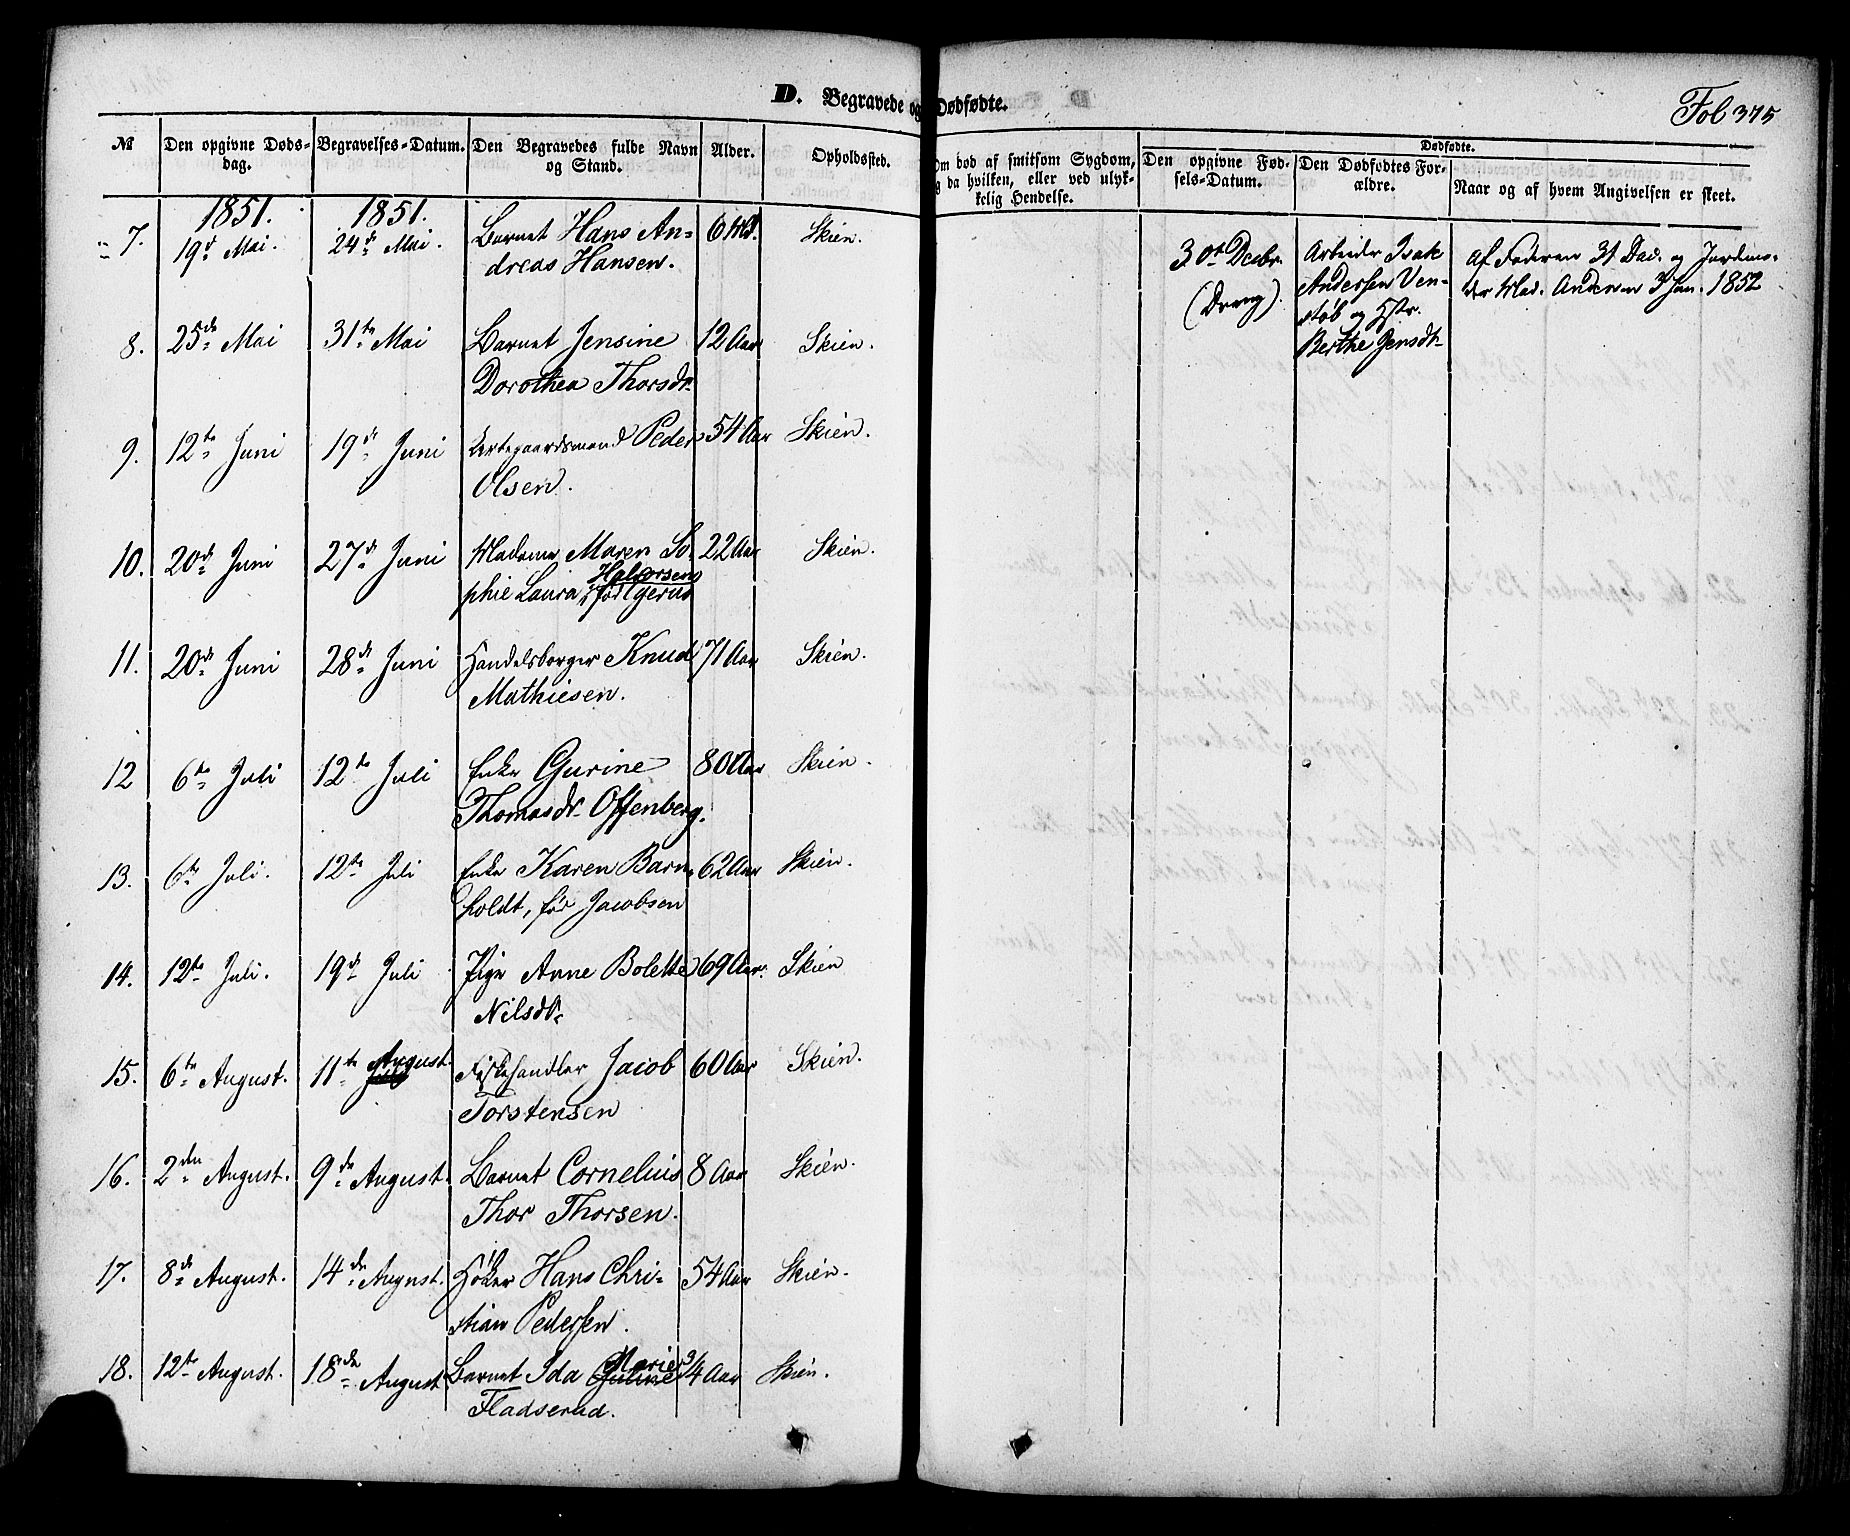 D. Begravede og Dødfødte.
Fol 375
№ | Den opgivne Døds-dag. | Begravelses-Datum. | Den Begravedes fulde Navn og Stand. | Alder. | Opholdssted. | Om død af smitsom Sygdom, og da hvilken, eller ved ulyk-kelig Hendelse. | Dødfødte. | Den opgivne Fød-sels-Datum. | Den Dødfødtes For-ældre. | Naar og af hvem Angivelsen er skeet.
1851. | 1851.
7. | 19d Mai. | 24de Mai. | Barnet Hans An-
dreas Hansen. | 6 Md. | Skien.
30t Decbr.
(Dreng).
Arbeider Isak
Andersen Ven-
støb og Hstr.
Berthe Jensdtr
Af Faderen 31 Dec. og Jordmo-
der Mad. Andersen 3 Jan. 1852
8. | 25de Mai | 31te Mai | Barnet Jensine
Dorothea Thorsdr | 12 Aar | Skien.
9. | 12te Juni | 19de Juni | Peder
Olsen. | 54 Aar | Skien.
10. | 20de Juni | 27de Juni | Madame Maren So-
phie Laura Halvorsen
før Gerud | 22 Aar | Skien.
11. | 20de Juni | 28de Juni | Handelsborger Knud
Mathiesen. | 71 Aar | Skien.
12 | 6te Juli | 12te Juli | Enke Gurine
Thomasdr Offenberg. | 80 Aar | Skien.
13. | 6te Juli. | 12te Juli | Enke Karen Barn-
holdt, før Jacobsen | 62 Aar | Skien.
14. | 12te Juli. | 19de Juli | Pige Anne Bolette
Nilsdr | 69 Aar. | Skien
15. | 6te August. | 11te August. | Fiskehandler Jacob
Torstensen | 60 Aar | Skien.
16. | 2den August. | 9de August. | Barnet Cornelius
Thor Thorsen. | 8 Aar | Skien.
17. | 8de August. | 14de August. | Høker Hans Chri-
stian Pedersen. | 54 Aar | Skien.
18. | 12te August. | 18de August | Barnet Ida Marie
Fladserud. | 3/4 Aar | Skien.